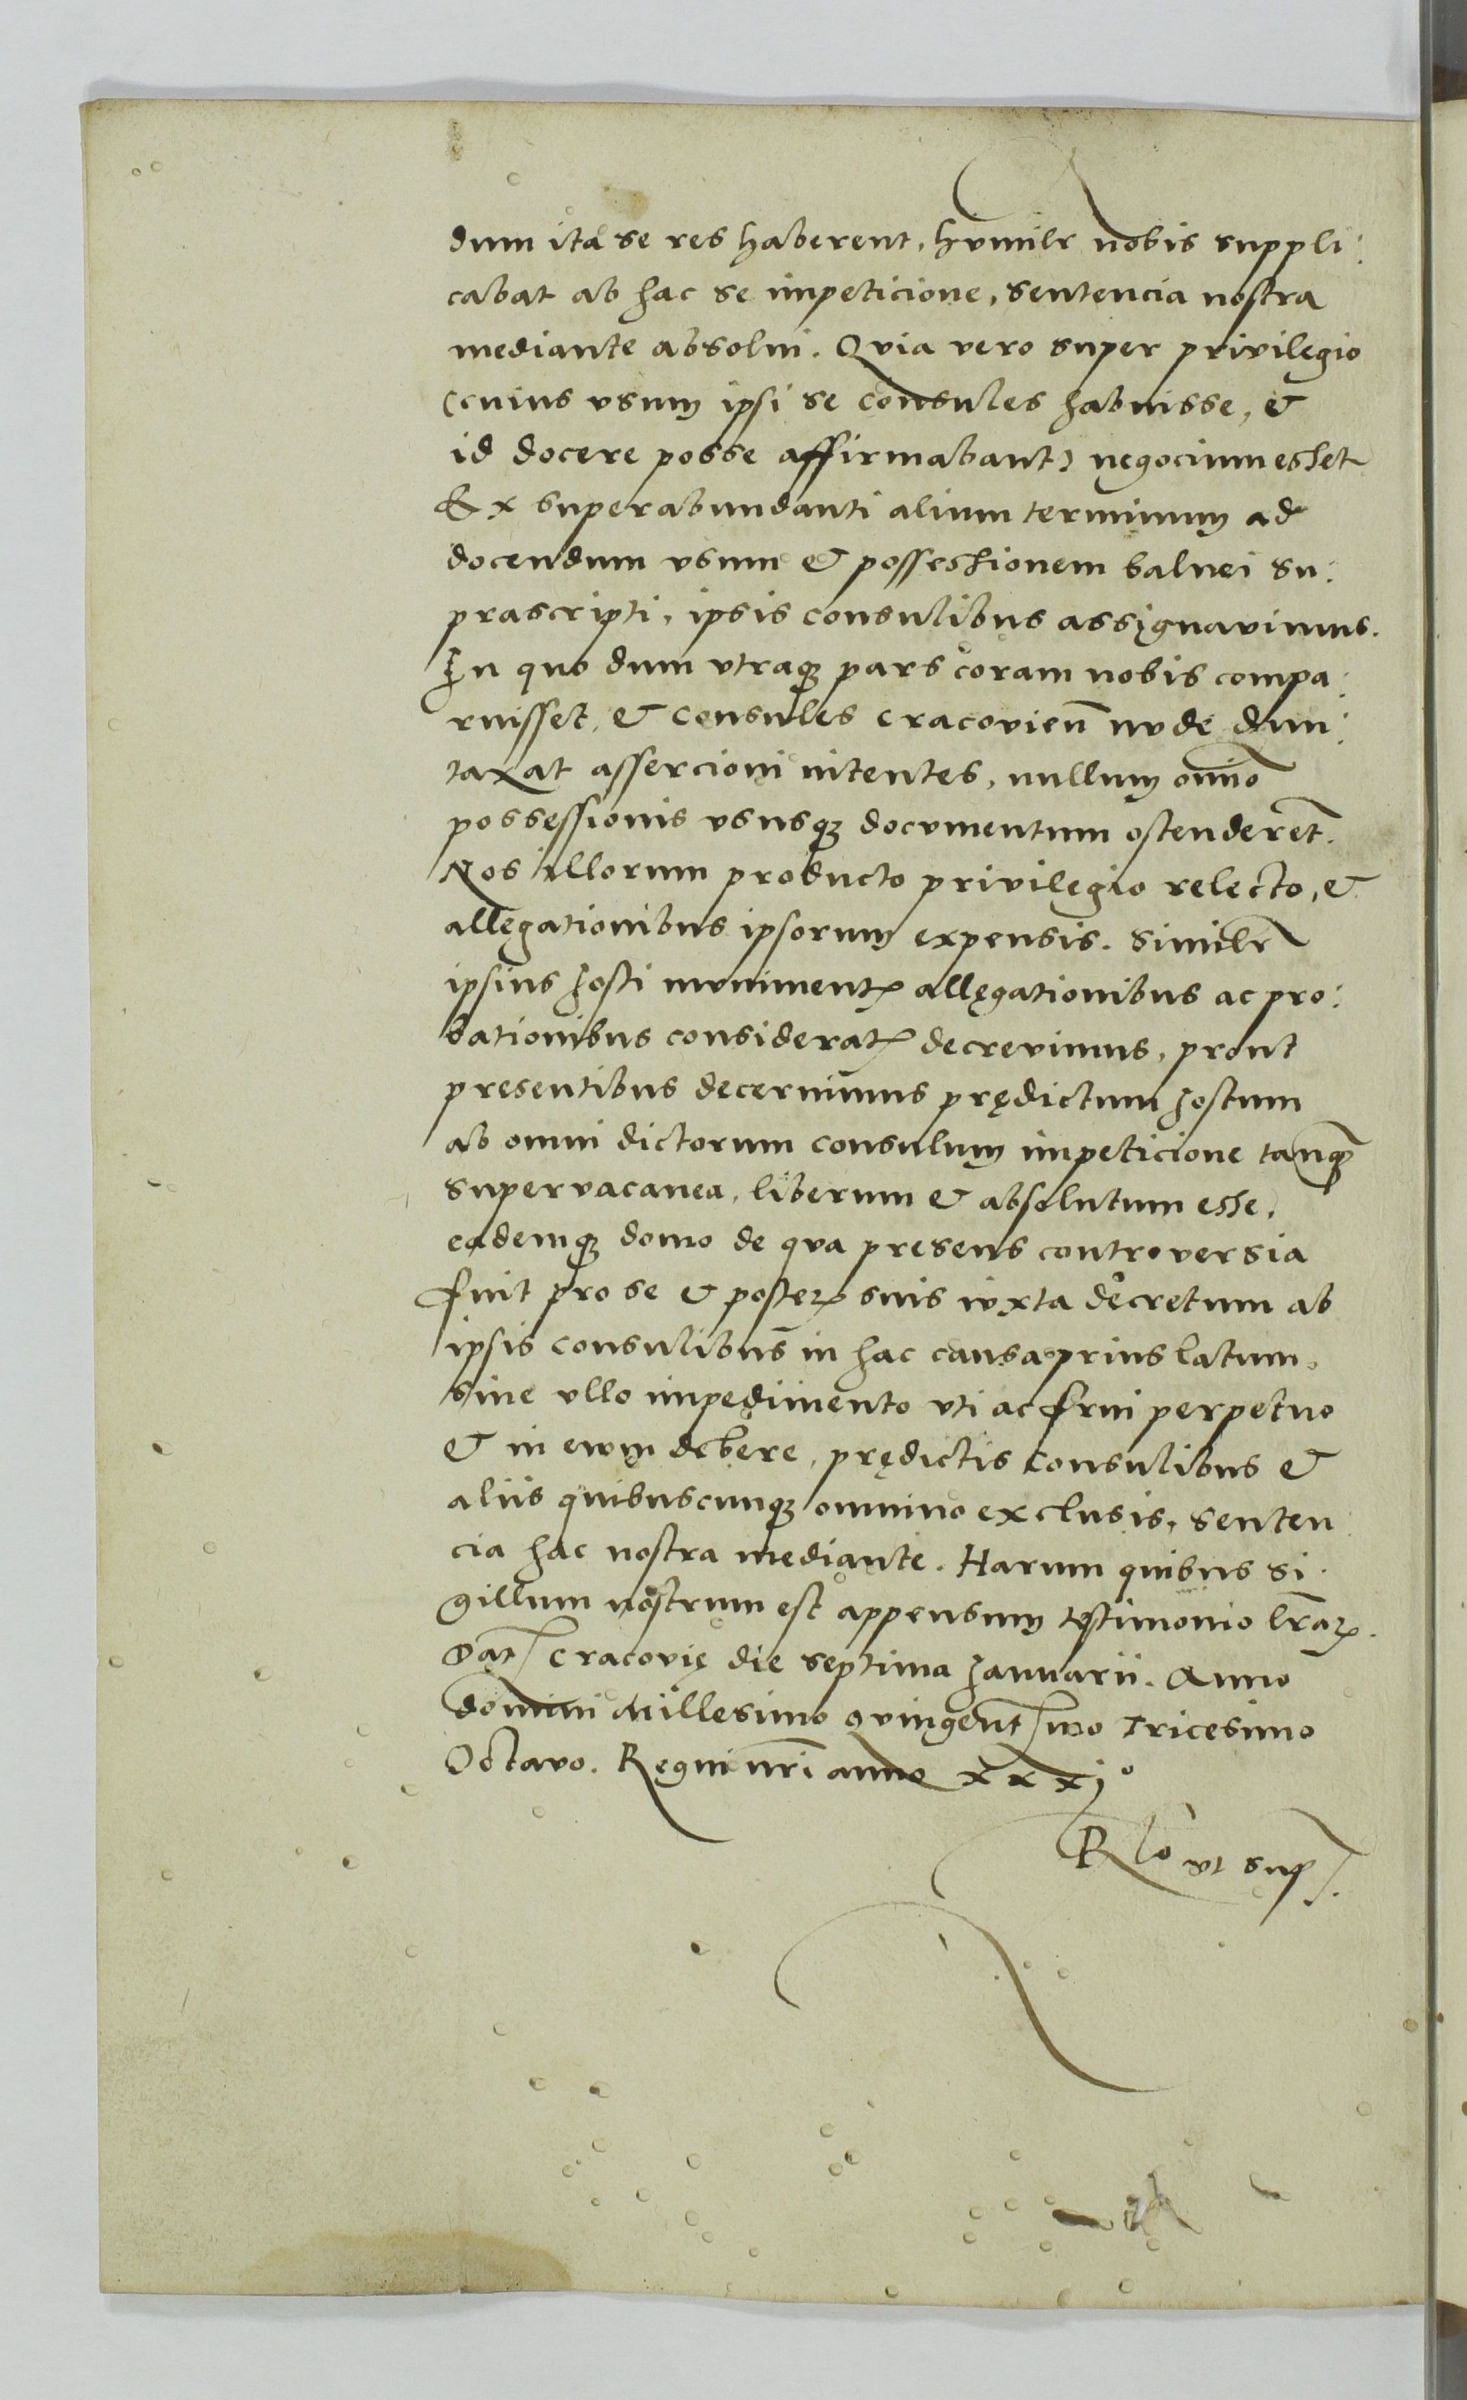 dum ita se res haberent, humilr nobis suppli:
cabat ab hac se impeticione, sentencia nostra
mediante absolui. Quia vero super privilegio
(cuius usum ipsi se consules habuisse, &
id docere posse affirmabant) negocium esset
Ex superabundanti alium terminum ad
docendum usum & possessionem balnei su:
prascripti, ipsis consulibus assignavimus.
In quo dum utraqꝫ pars coram nobis compa:
ruisset, & consules cracovien̄ nude dun:
taxat assercioni nitentes, nullum om̄io
possessionis ususqꝫ documentum ostenderet̄.
Nos illorum producto privilegio relecto, &
allegationibus ipsorum expensis. Similr̄
ipsius Josti munimentꝭ allegationibus ac pro:
bationibus consideratꝭ decrevimus, prout
presentibus decernimus prędictum Jostum
ab omni dictorum consulum impeticione tanqꝫ
supervacanea, liberum & absolutum esse,
eademqꝫ domo de qua presens controversia
fuit pro se & posterꝭ suis iuxta decretum ab
ipsis consulibus in hac causa prius latum,
sine ullo impedimento uti ac frui perpetuo
& in ewm debere, prędictis consulibus &
aliis quibuscunqꝫ omnino exclusis, senten
cia hac nostra mediante. Harum quibus si:
gillum nostrum est appensum testimonio lr̄aꝝ.
Dat Cracovię die septima Januarii. Anno
domini Millesimo quingentesimo Tricesimo
Octavo. Regni nr̄i anno xxxjº
Rlō ut sup.